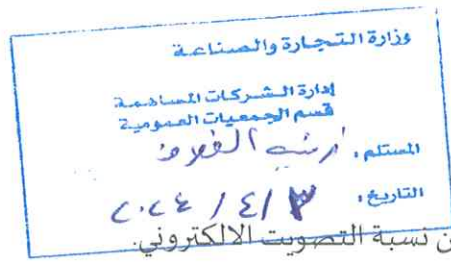 وزارة التجارة والصناعة
إدارة الشركات المساهمة
قسم الجمعيات العمومية
المستلم،
التاريخ، ٢٠٢٤ / ٤ / ٣
ن نسبة التصويت الالكتروني.